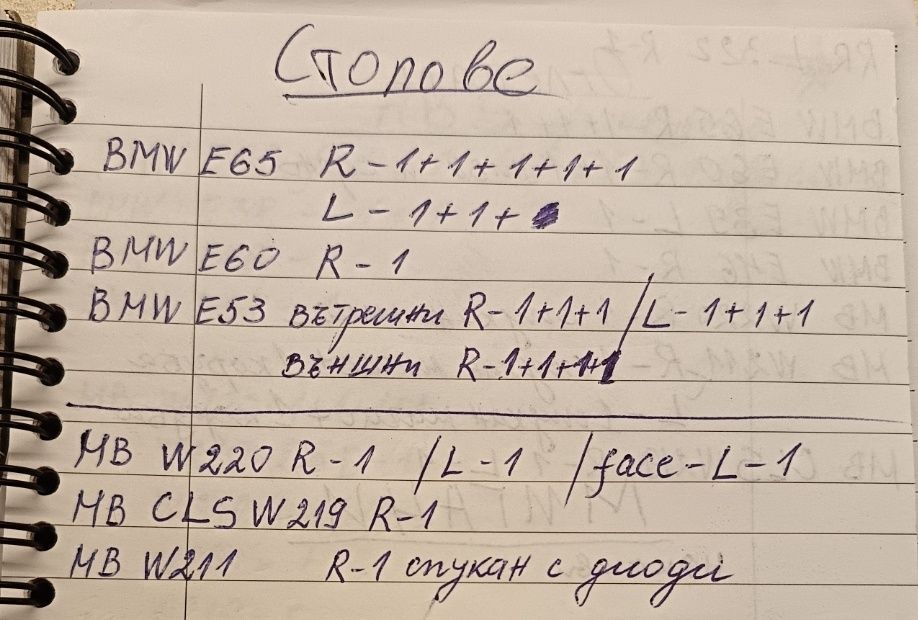 Стопове
BMW E65 R - 1+1+1+1+1
L - 1+1+
BMW E60 R - 1
BMW E53 вътрешни R-1+1+1 / L-1+1+1
външни R-1+1+1+1
MB W220 R-1 / L-1 / face-L-1
MB CLS W219 R-1
MB W211 R-1 спукан с диоди